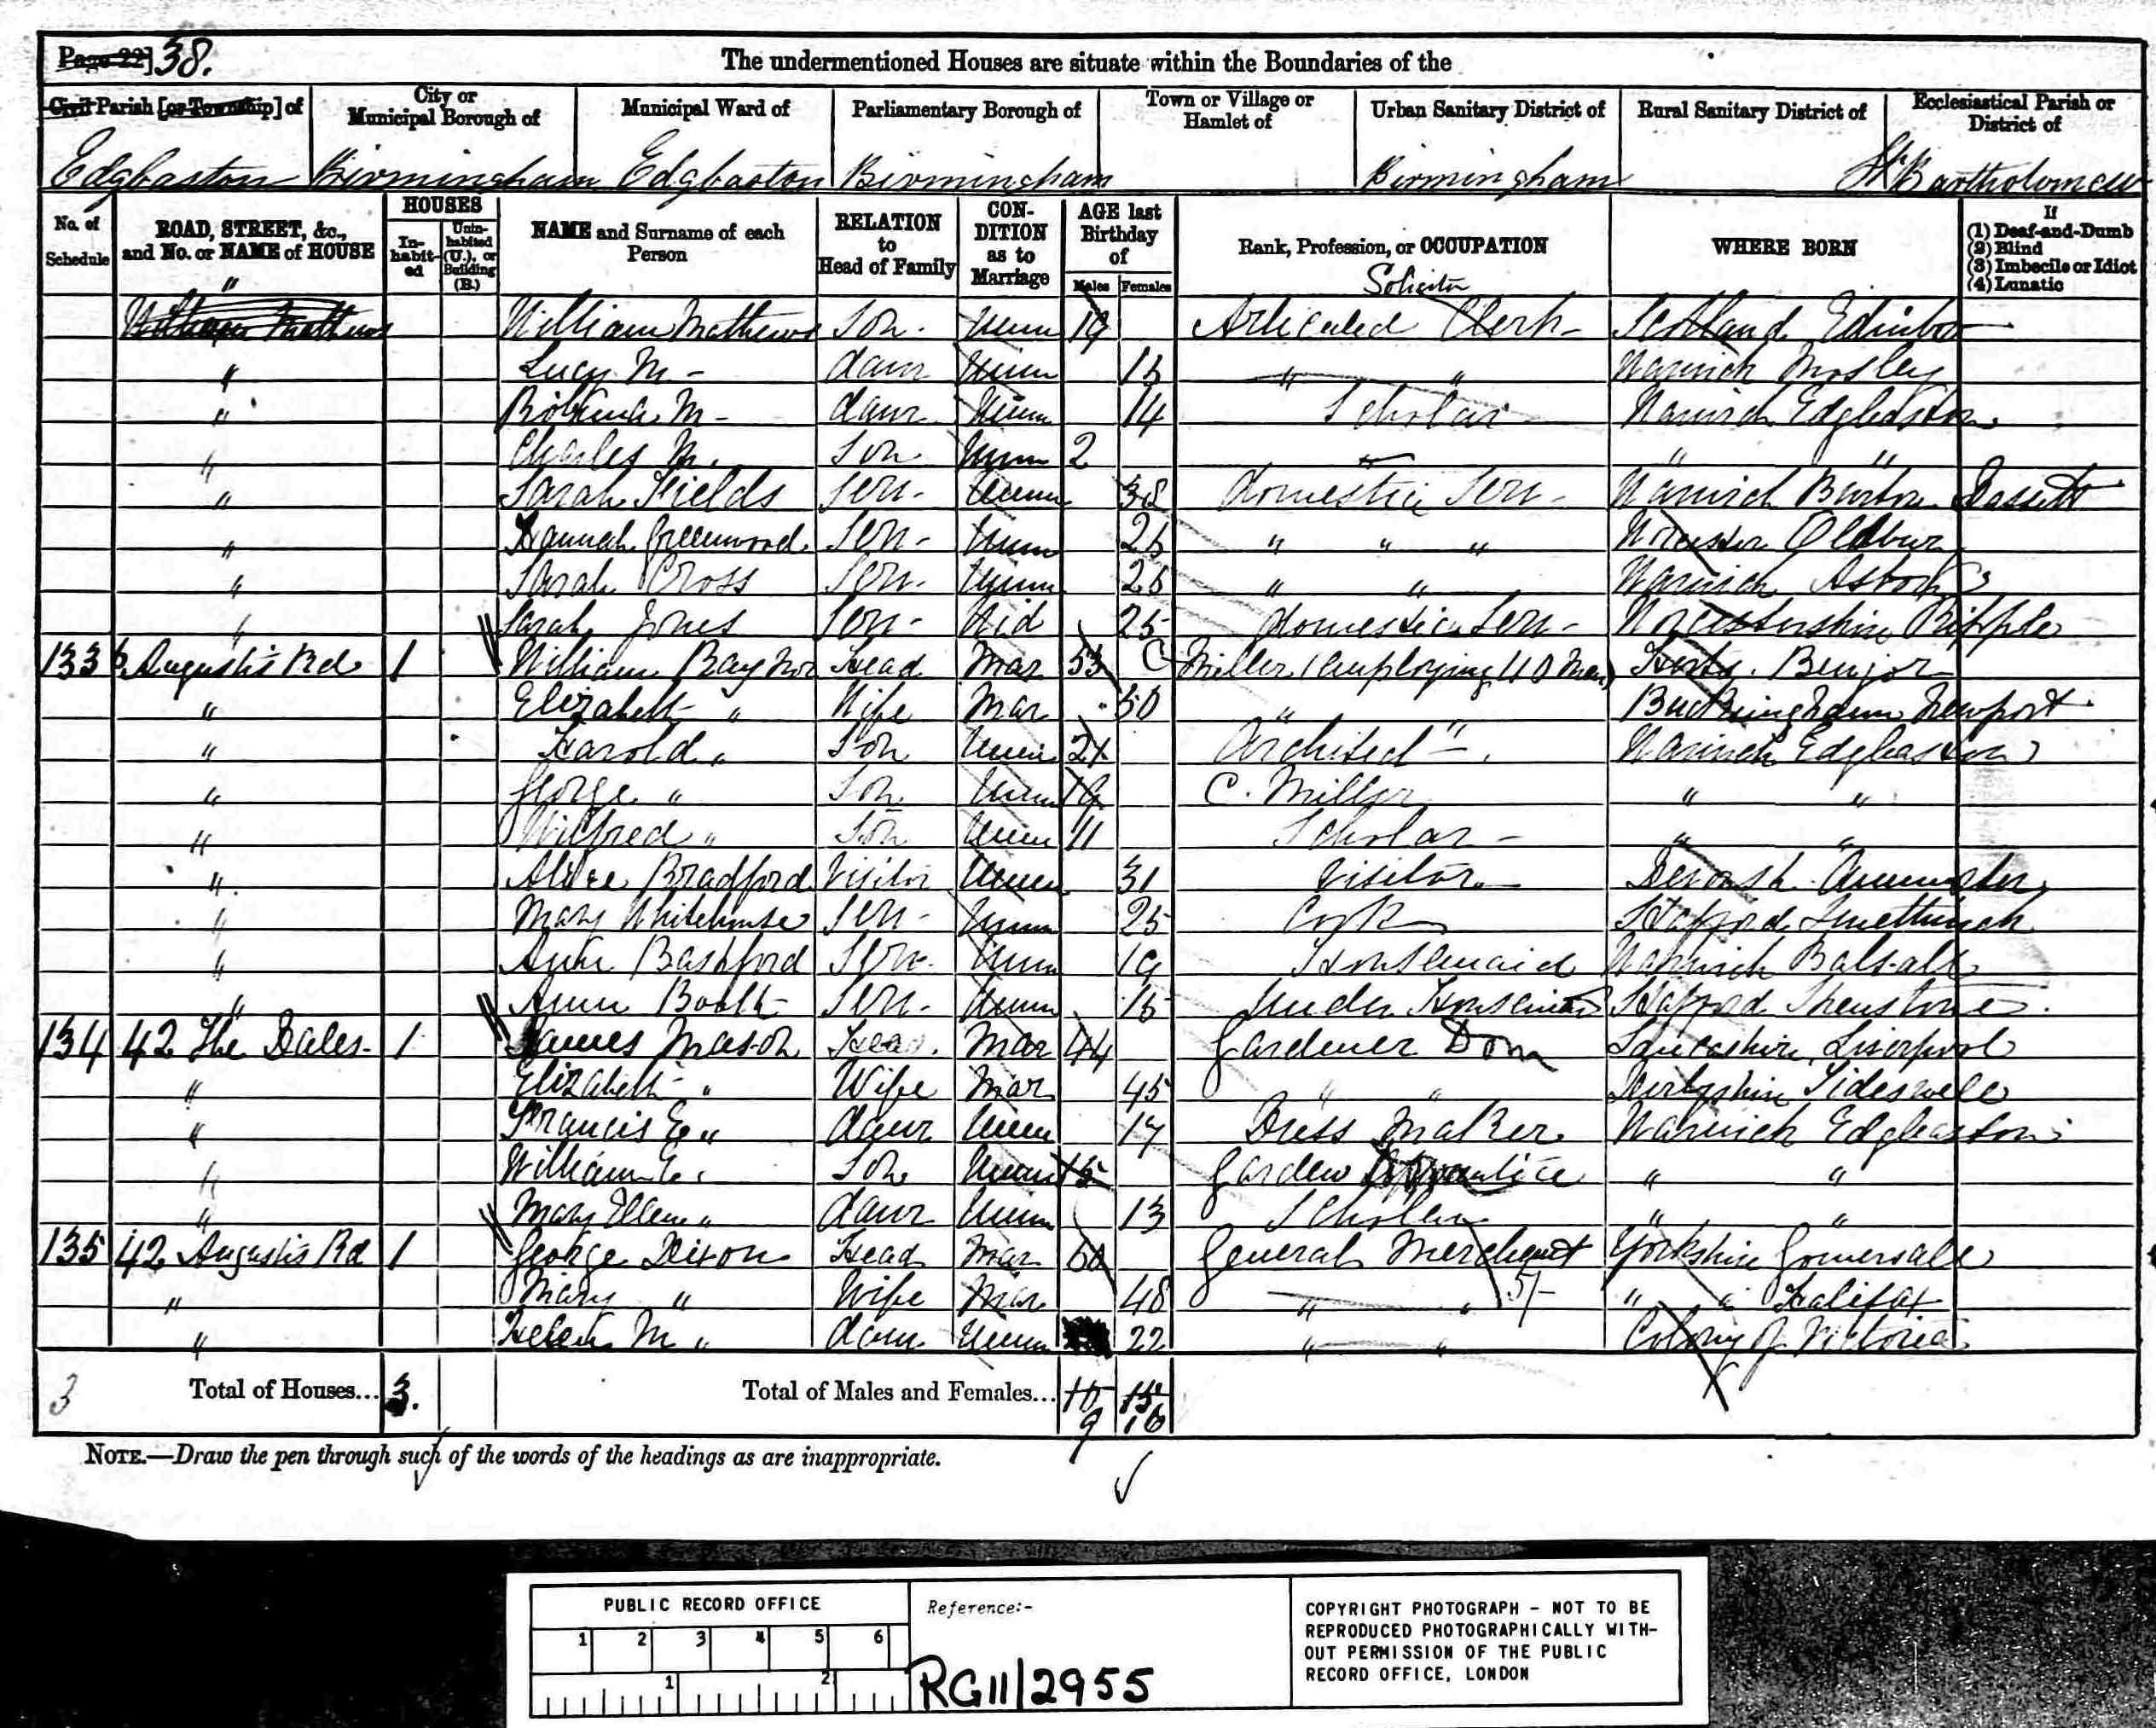 Page 22] 38.
The undermentioned Houses are situate within the Boundaries of the
Civil Parish [or Township] of City or Municipal Borough of Municipal Ward of Parliamentary Borough of Town or Village or Hamlet of Urban Sanitary District of Rural Sanitary District of Ecclesiastical Parish or District of
Edgbaston Birmingham Edgbaston Birmingham Birmingham St Bartholomew
No. of Schedule ROAD, STREET, &c., and No. or NAME of HOUSE HOUSES In-habit-ed Unin-habited (U.), or Building (B.) NAME and Surname of each Person RELATION to Head of Family CON-DITION as to Marriage AGE last Birthday of Males Females Rank, Profession, or OCCUPATION WHERE BORN If (1) Deaf-and-Dumb (2) Blind (3) Imbecile or Idiot (4) Lunatic
" Solicitor
William Mathews William Mathews Son. Unm 19 Articuled Clerk- Scotland Edinbro
" Lucy M - daur Unm " " Warwick Mosley
" M - daur Unm 14 Scholar Warwick Edgbaston
" Charles M. Son Unm 2 " "
" Sarah Fields Serv- Unm 38 domestic Serv- Warwick Burton Dassett
" Hannah Greenwood Serv- Unm " " " Worcester Oldbury
" Sarah Cross Serv. Unm " " Warwick
" Sarah Jones Serv- Wid 25 domestic Serv- Worcestershire Ripple
133 Augustis Rd 1 William Baynor Head Mar 53 C Miller (employing 40 Men) Herts.
" Elizabeth " Wife Mar 50 " " Buckingham Newport
" Harold " Son Unm 21 Architect Warwick Edgbaston
" George " Son Unm 19 C. Miller " "
" Wilfred " Son Unm 11 Scholar - " "
" Alice Bradford Visitor Unm 31 Visitor Devonsh
" Mary Whitehouse Serv- Unm 25 Cook Stafford Smethwick
" Bashford Serv- Unm 19 Housemaid Warwick Balsall
" Ann Booth Serv- Unm 15 Under Housemaid Stafford Shenstone
134 42 The Dales- 1 James Mason Head. Mar 44 Gardener Dom Lancashire Liverpool
" Elizabeth " Wife Mar 45 " " Derbyshire Tideswell
" Francis E " daur Unm 17 Dress Maker Warwick Edgbaston
" William E. Son Unm 15 Garden Apprentice " "
" Mary Ellen " daur Unm 13 Scholar " "
135 42 Augustis Rd 1 George Dixon Head Mar 60 General Merchant Yorkshire Gomersall
" Mary " Wife Mar 48 " " 5/- " " Halifax
" Helen M " daur Unm 22 " " Colony of Victoria
3 Total of Houses... 3. Total of Males and Females... 10 15
9 16
NOTE.—Draw the pen through such of the words of the headings as are inappropriate.
PUBLIC RECORD OFFICE
1 2 3 4 5 6
1 2
Reference:-
RG11/2955
COPYRIGHT PHOTOGRAPH - NOT TO BE
REPRODUCED PHOTOGRAPHICALLY WITH-
OUT PERMISSION OF THE PUBLIC
RECORD OFFICE, LONDON